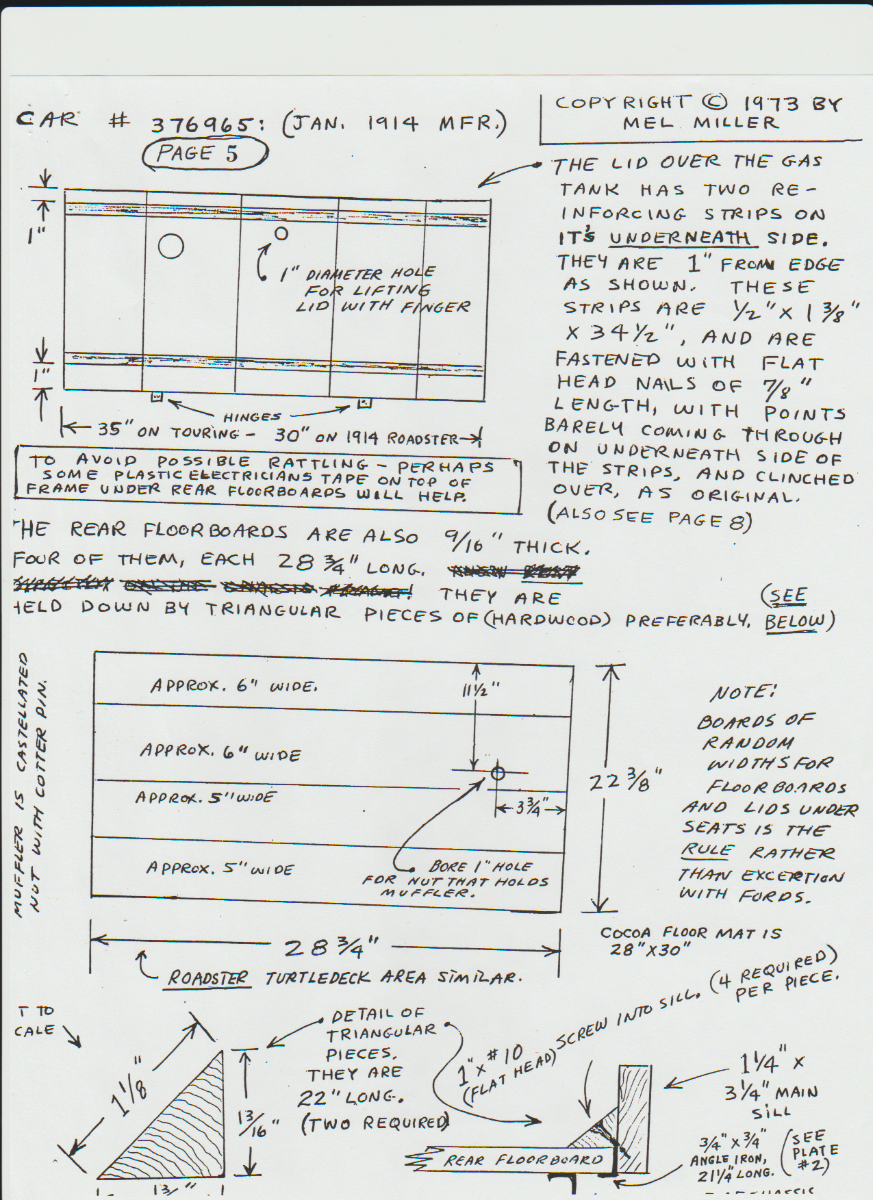 CAR # 376965: (JAN. 1914 MFR.)
PAGE 5
COPYRIGHT © 1973 BY
MEL MILLER
THE LID OVER THE GAS
TANK HAS TWO RE-
INFORCING STRIPS ON
IT'S UNDERNEATH SIDE.
THEY ARE 1" FROM EDGE
AS SHOWN. THESE
STRIPS ARE 1/2" X 1 3/8"
X 34 1/2", AND ARE
FASTENED WITH FLAT
HEAD NAILS OF 7/8"
LENGTH, WITH POINTS
BARELY COMING THROUGH
ON UNDERNEATH SIDE OF
THE STRIPS, AND CLINCHED
OVER, AS ORIGINAL.
(ALSO SEE PAGE 8)
1"
1" DIAMETER HOLE
FOR LIFTING
LID WITH FINGER
1"
HINGES
35" ON TOURING - 30" ON 1914 ROADSTER
TO AVOID POSSIBLE RATTLING - PERHAPS
SOME PLASTIC ELECTRICIANS TAPE ON TOP OF
FRAME UNDER REAR FLOORBOARDS WILL HELP.
THE REAR FLOORBOARDS ARE ALSO 9/16" THICK.
FOUR OF THEM, EACH 28 3/4" LONG.
THEY ARE (SEE
HELD DOWN BY TRIANGULAR PIECES OF (HARDWOOD) PREFERABLY. BELOW)
MUFFLER IS CASTELLATED
NUT WITH COTTER PIN.
APPROX. 6" WIDE.
APPROX. 6" WIDE
APPROX. 5" WIDE
APPROX. 5" WIDE
11 1/2"
3 3/4"
BORE 1" HOLE
FOR NUT THAT HOLDS
MUFFLER.
22 3/8"
NOTE:
BOARDS OF
RANDOM
WIDTHS FOR
FLOORBOARDS
AND LIDS UNDER
SEATS IS THE
RULE RATHER
THAN EXCERTION
WITH FORDS.
28 3/4"
ROADSTER TURTLEDECK AREA SIMILAR.
COCOA FLOOR MAT IS
28" X 30"
T TO
CALE
1 1/8"
13/16"
DETAIL OF
TRIANGULAR
PIECES.
THEY ARE
22" LONG.
(TWO REQUIRED)
1" X #10
(FLAT HEAD)
SCREW INTO SILL. (4 REQUIRED)
PER PIECE.
1 1/4" X
3 1/4" MAIN
SILL
REAR FLOORBOARD
3/4" X 3/4"
ANGLE IRON,
21 1/4" LONG.
(SEE
PLATE
#2)